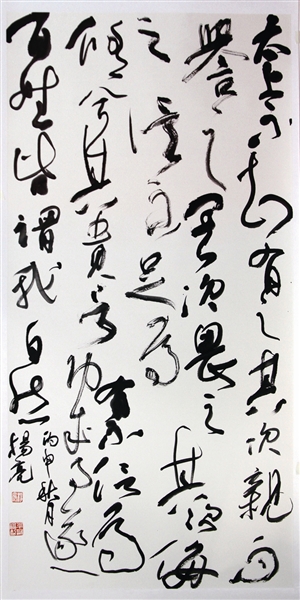 太上不知有之其次親而
譽之其次畏之其次侮
之信不足焉有不信焉
悠兮其貴言功成事遂
百姓皆謂我自然
丙申秋月
楊亮